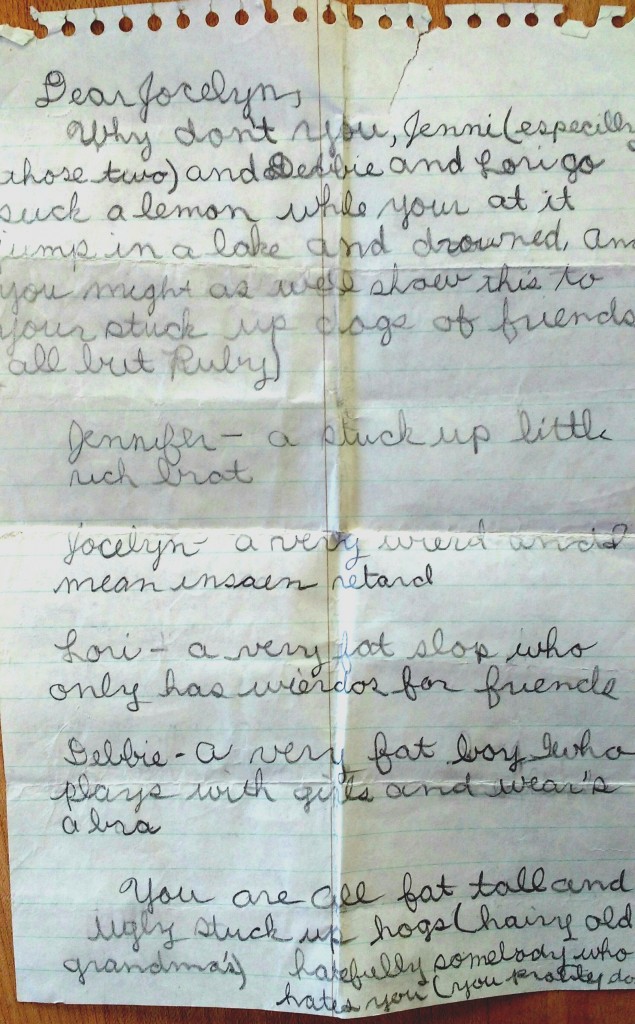 Dear Jocelyn,
Why don't you, Jenni (especilly
those two) and Debbie and Lori go
suck a lemon while your at it
jump in a lake and drowned, and
you might as well show this to
your stuck up dogs of friends
(all but Ruby)
Jennifer - a stuck up little
rich brat
Jocelyn - a very wierd and
mean insaen retard
Lori - a very fat slop who
only has wierdos for friends
Debbie - a very fat boy who
plays with girls and wear's
a bra
You are all fat tall and
ugly stuck up hogs (hairy old
grandma's) hatefully somebody who
hates you (you probly do